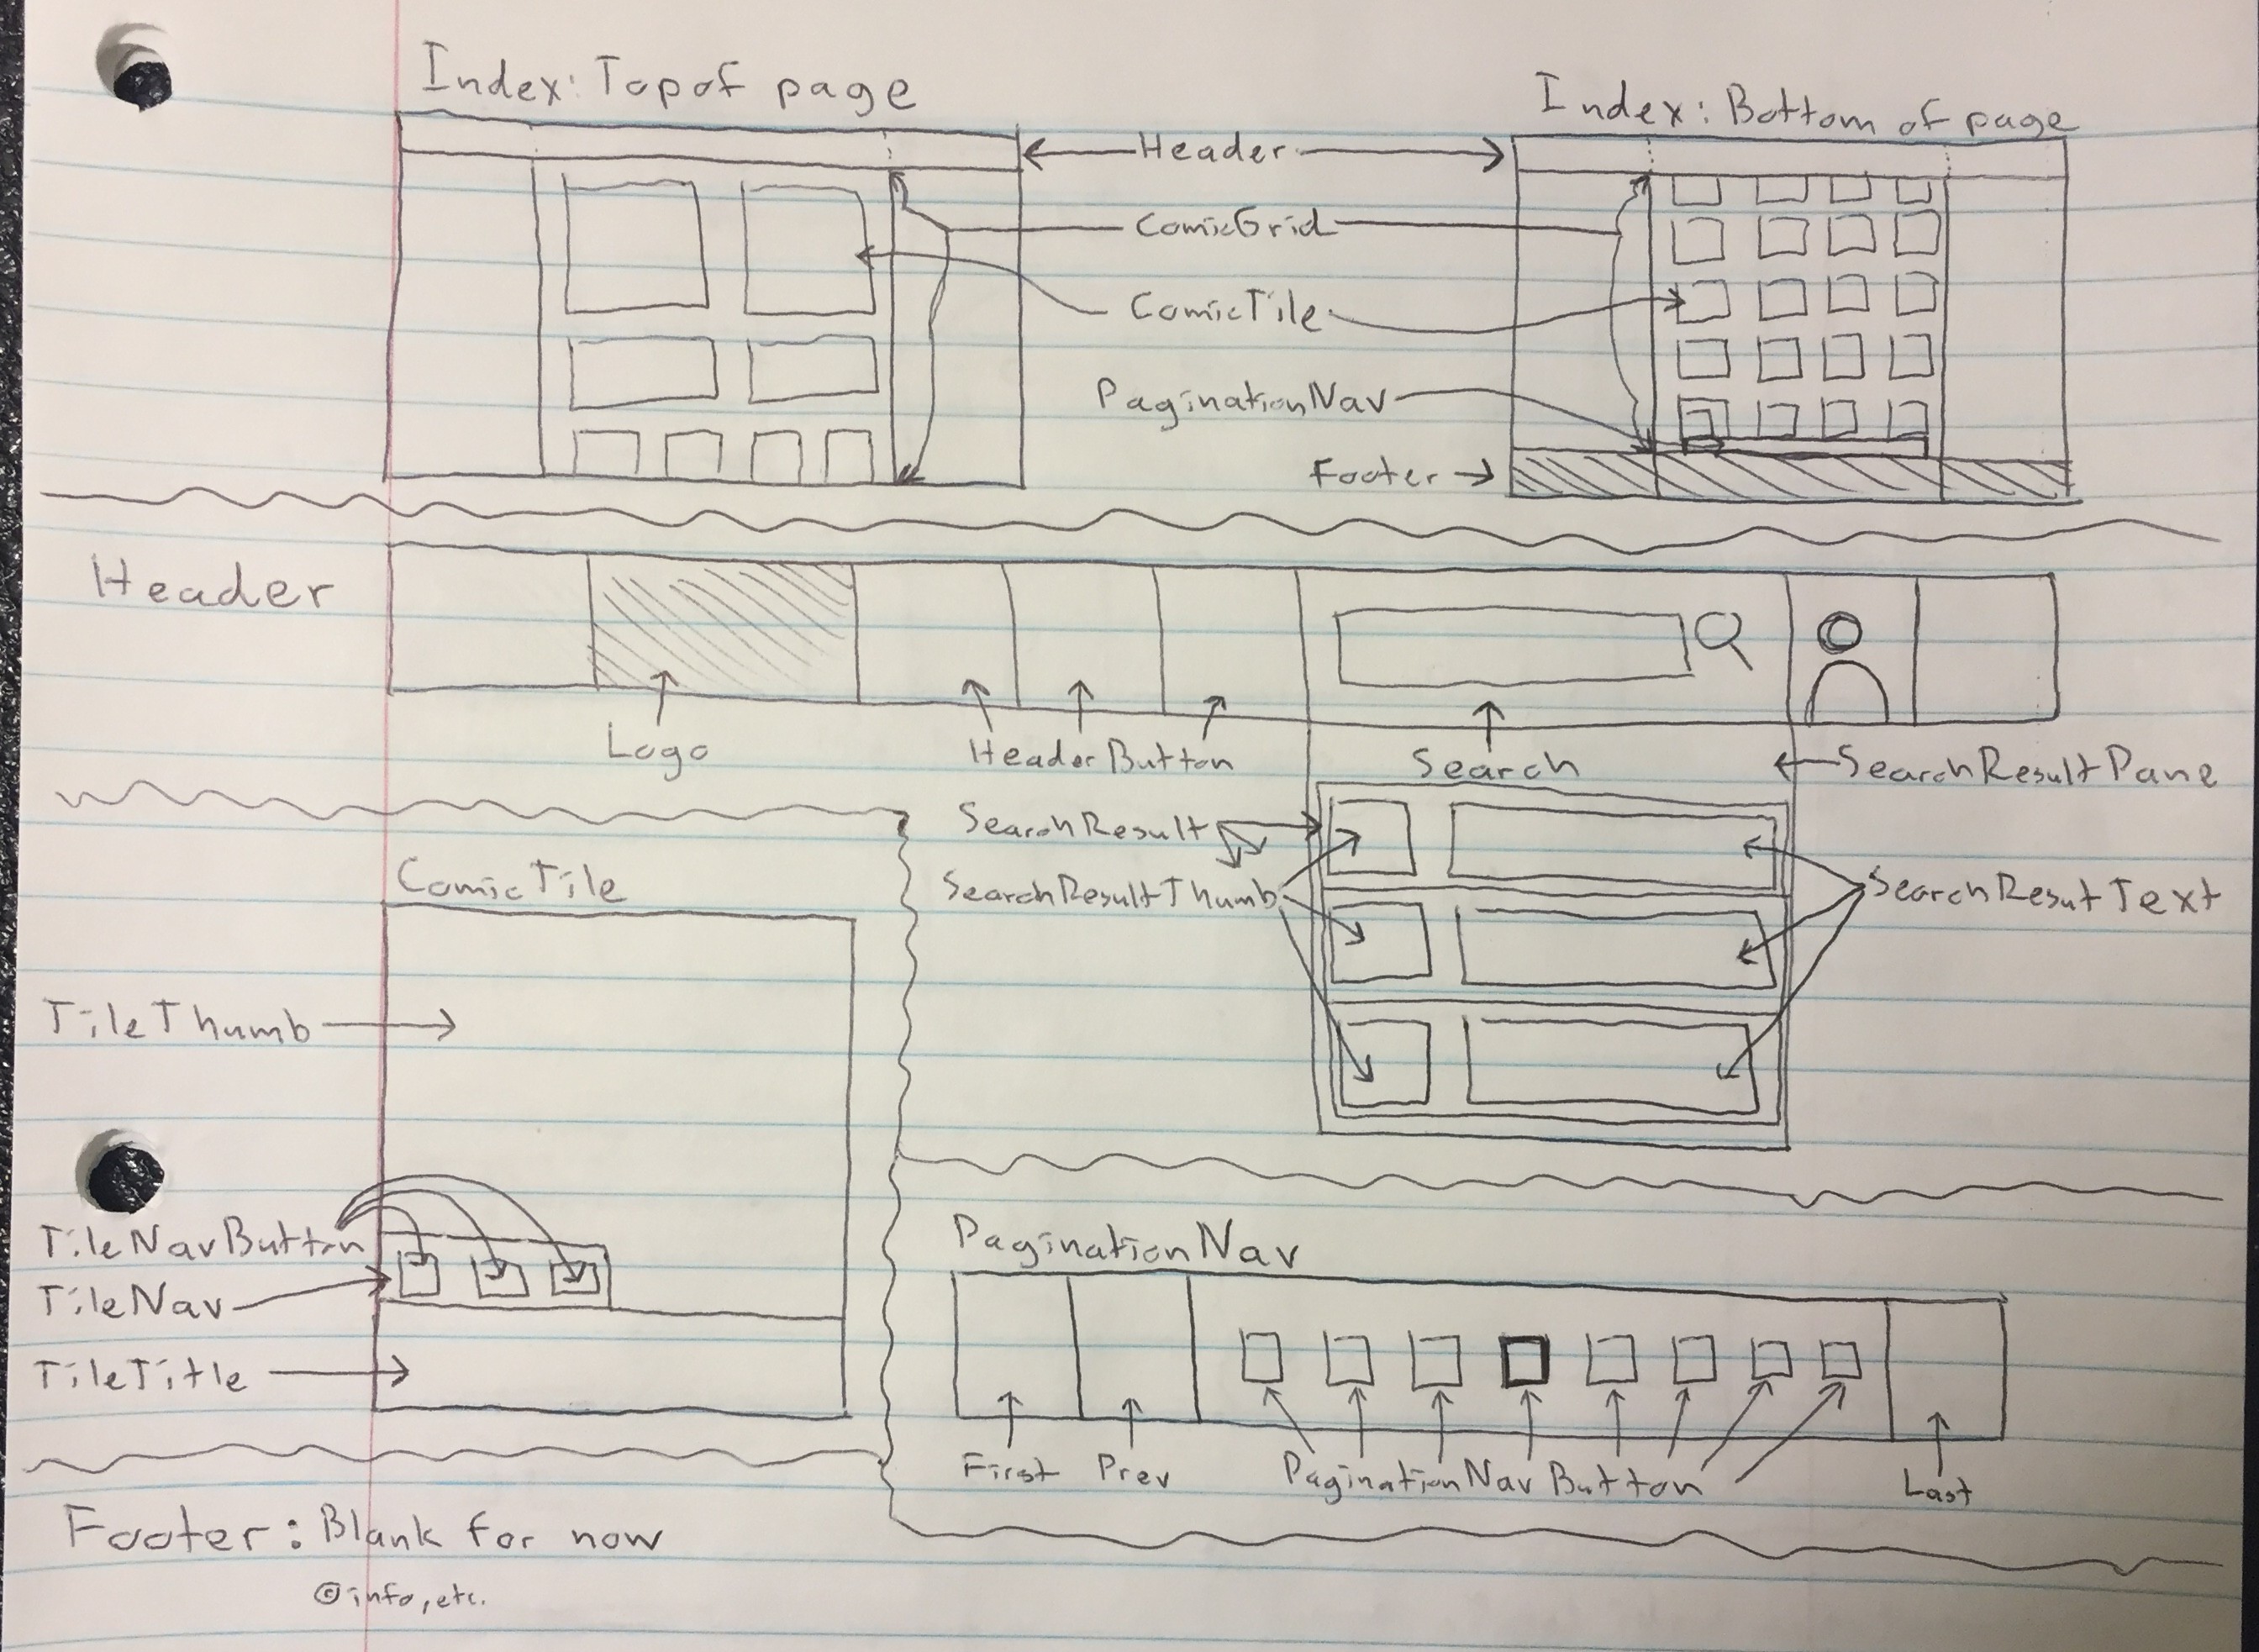 Index: Top of page
Index: Bottom of page
Header
ComicGrid
ComicTile
PaginationNav
Footer
Header
Logo
HeaderButton
Search
SearchResultPane
SearchResult
SearchResultThumb
SearchResutText
ComicTile
TileThumb
TileNavButton
TileNav
TileTitle
PaginationNav
First
Prev
PaginationNavButton
Last
Footer: Blank for now
©info, etc.